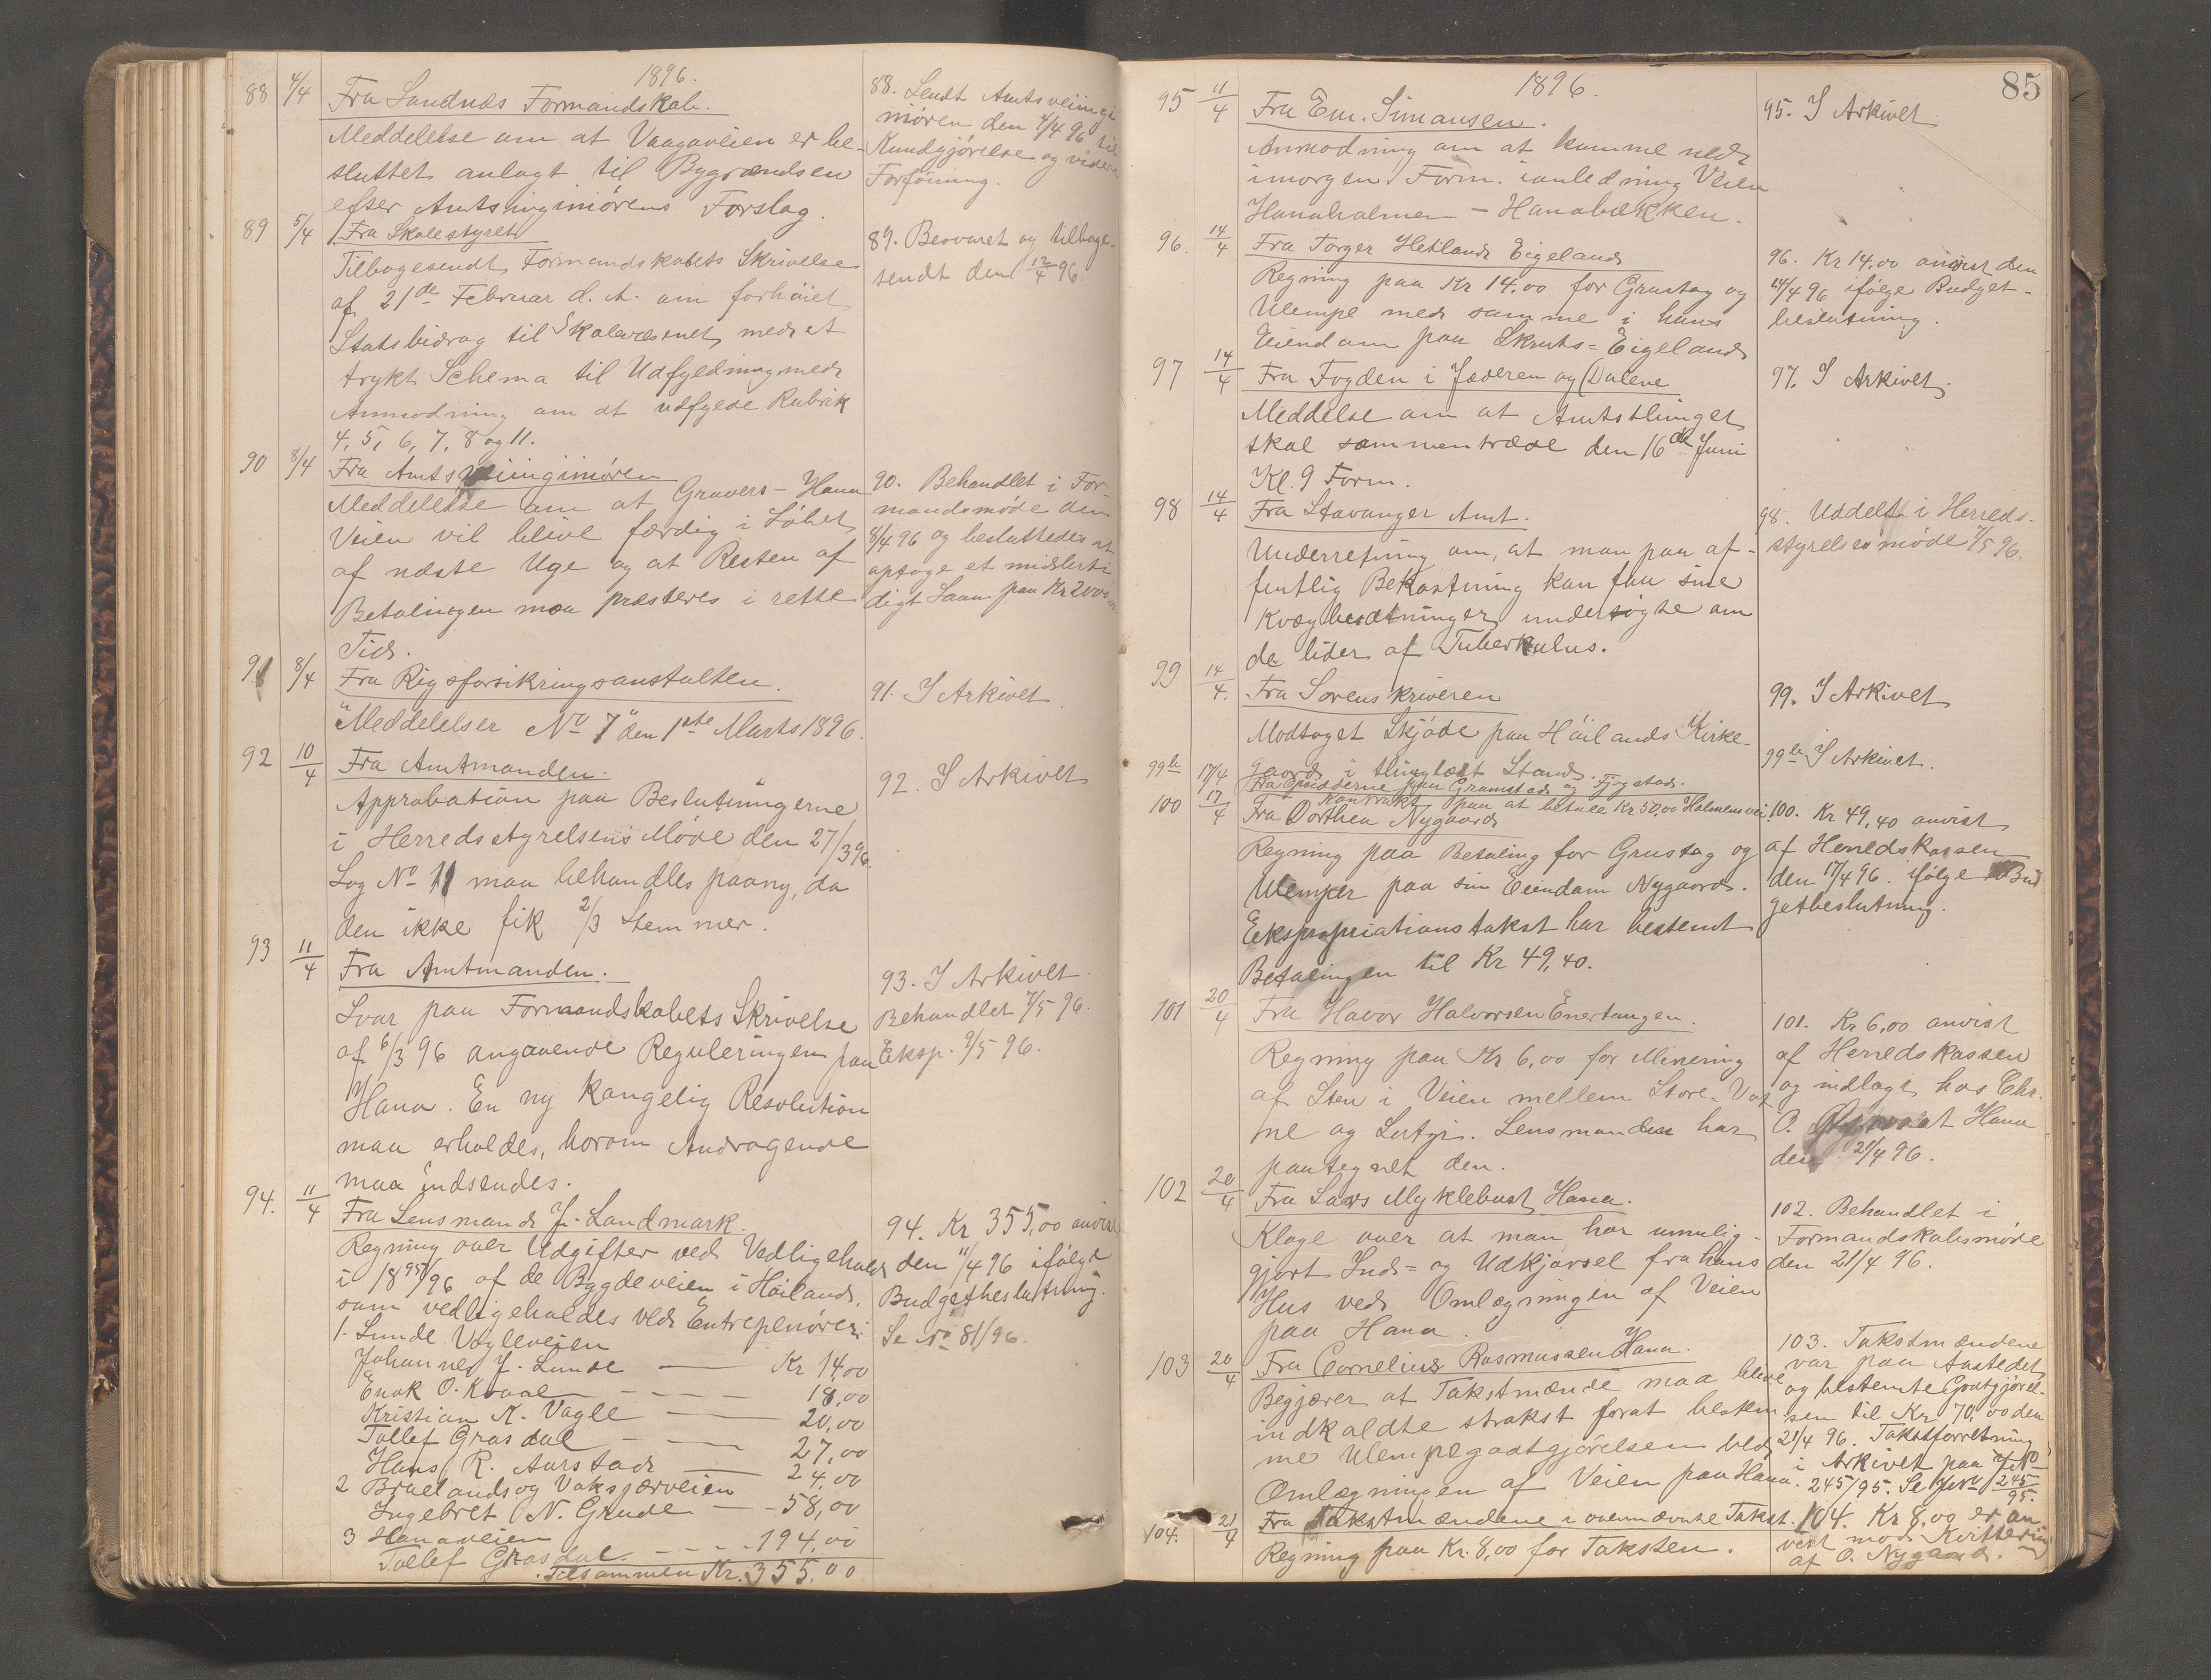 1896.
88 4/4 Fra Sandnæs Formandskab.
Meddelelse om at Vaagaveien er be-
sluttet anlagt til Bygrændsen
efter Amtsingeniørens Forslag.
88. Sendt Amtsveiingi
niøren den 4/4 96 til
Kundgjørelse og videre
Forføining.
89 5/4 Fra Skolestyret
Tilbagesendt Formandskabets Skrivelse
af 21de Februar d. A. om forhøiet
Statsbidrag til Skolevæsenet, med et
trykt Schema til Udfyldning med
Anmodning om at udfylde Rubrik
4, 5, 6, 7, 8 og 11.
89. Besvaret og tilbage-
sendt den 12/4 96.
90 8/4 Fra Amtsveiingeniøren
Meddelelse om at Gravers - Hana
Veien vil blive færdig i Løbet
af næste Uge og at Resten af
Betalingen maa præsteres i rette
Tid.
90. Behandlet i For-
mandsmøde den
8/4 96 og besluttedes at
optage et midlerti
digt Laan paa Kr 2000
91 8/4 Fra Rigsforsikringsanstalten.
"Meddelelser No 7" den 1ste Marts 1896.
91. I Arkivet.
92 10/4 Fra Amtmanden.
Approbation paa Beslutningerne
i Herredsstyrelsens Møde den 27/3 96.
Sag No 11 maa behandles paany, da
den ikke fik 2/3 Stemmer.
92. I Arkivet
93 11/4 Fra Amtmanden.
Svar paa Formandskabets Skrivelse
af 6/3 96 angaaende Reguleringen paa
Hana. En ny Kongelig Resolution
maa erholdes, hvorom Andragende
maa indsendes.
93. I Arkivet.
Behandlet 7/5 96.
Eksp. 9/5 96.
94. 11/4 Fra Lensmand J. Landmark.
Regning over Udgifter ved Vedligehold
i 1895/96 af de Bygdeveien i Høiland,
som vedligeholdes ved Entrepenører:
1. Lunde Vagleveien
Johannes J. Lunde — Kr 14,00
Enok O. Kvaal — — — 18,00
Kristian K. Vagle — 20,00
Tollef Grasdal — — 27,00
Hans R. Aarstad — 24,00
2 Brueland og Vaksjærveien
Ingebret N. Grude — - 58,00
3 Hanaveien
Tollef Grasdal. - - - 194,00
Tilsammen Kr. 355,00
94. Kr 355,00 anvist
den 11/4 96 ifølge
Budgetbeslutning.
Se No 81/96.
85
1896.
95 11/4 Fra Em. Simonsen.
Anmodning om at komme ned
imorgen Form. ianledning Veien
Hanaholmen - Hanabækken.
95. I Arkivet
96. 14/4 Fra Torger Hetland Eigeland
Regning paa Kr 14.00 for Grustag og
Ulempe med samme i hans
Eiendom paa Skruts=Eigeland
96. Kr 14,00 anvist den
14/4 96 ifølge Budget-
beslutning.
97 14/4 Fra Fogden i Jæderen og Dalene
Meddelse om at Amtsthinget
skal sammentræde den 16de Juni
Kl. 9 Form.
97. I Arkivet.
98 14/4 Fra Stavanger Amt.
Underretning om, at man paa of-
fentlig Bekostning kan faa sine
Kvægbesætninger undersøgte om
de lider af Tuberkulos.
98. Uddelt i Herreds-
styrelses møde 7/5 96.
99 14/4. Fra Sorenskriveren
Modtaget Skjøde paa Høilands Kirke-
gaard i thinglæst Stand.
99. I Arkivet
99b 17/4 Fra Opsidderne paa Gramstad og Fjogstad.
Kontrakt paa at betale Kr 50,00 Holmensvei.
99b I Arkivet.
100 17/4 Fra Dorthea Nygaard
Regning paa Betaling for Grustag og
Ulemper paa sin Eiendom Nygaard.
Ekspropriationstakst har bestemt
Betalingen til Kr 49,40.
100. Kr 49,40 anvist
af Herredskassen
den 17/4 96. ifølge Bud
getbeslutning.
101 20/4 Fra Havor Halvorsen Enertangen.
Regning paa Kr 6,00 for Minering
af Sten i Veien mellem Store-Vat
ne og Lutsi. Lensmanden har
paategnet den.
101. Kr 6,00 anvist
af Herredskassen
og indlagt hos Chr.
O. Hana
den 21/4 96.
102 20/4 Fra Lars Myklebust Hana.
Klage over at man har umulig-
gjort Ind= og Udkjørsel fra hans
Hus ved Omlægningen af Veien
paa Hana.
102. Behandlet i
Formandskabsmøde
den 21/4 96.
103 20/4 Fra Cornelius Rasmussen Hana.
Begjærer at Takstmænde maa blive
indkaldte strakst forat bestem
me Ulempegodtgjørelsen ved
Omlægningen af Veien paa Hana.
103. Takstmændene
var paa Aastedet
og bestemte Godtgjørel-
sen til Kr 70,00 den
21/4 96. Takstforretning
i Arkivet paa No
245/95. Se 245/95.
104. 21/4 Fra Takstmændene i ovennævnte Takst.
Regning paa Kr. 8,00 for Taksten.
104. Kr 8,00 er an
vist mod Kvittering
af O. Nygaard.